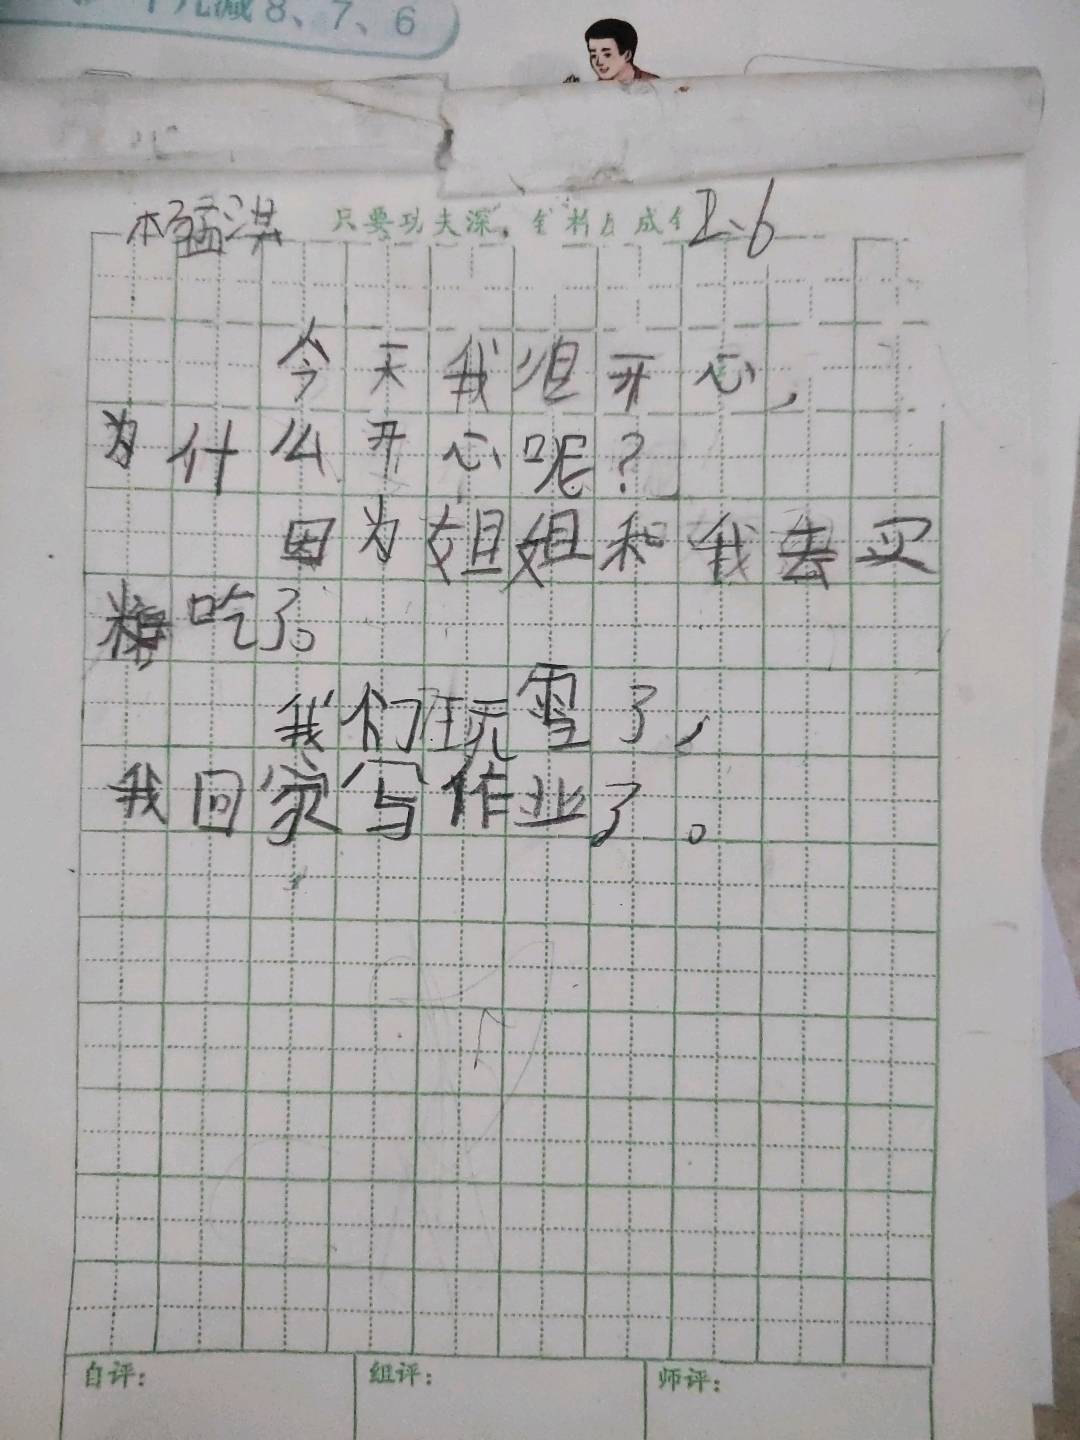 十几减8、7、6
李孟淇 只要功夫深，铁杵成 2.6
今天我很开心，
为什么开心呢？
因为姐姐和我去买
糖吃了。
我们玩雪了，
我回家写作业了。
自评： 组评： 师评：